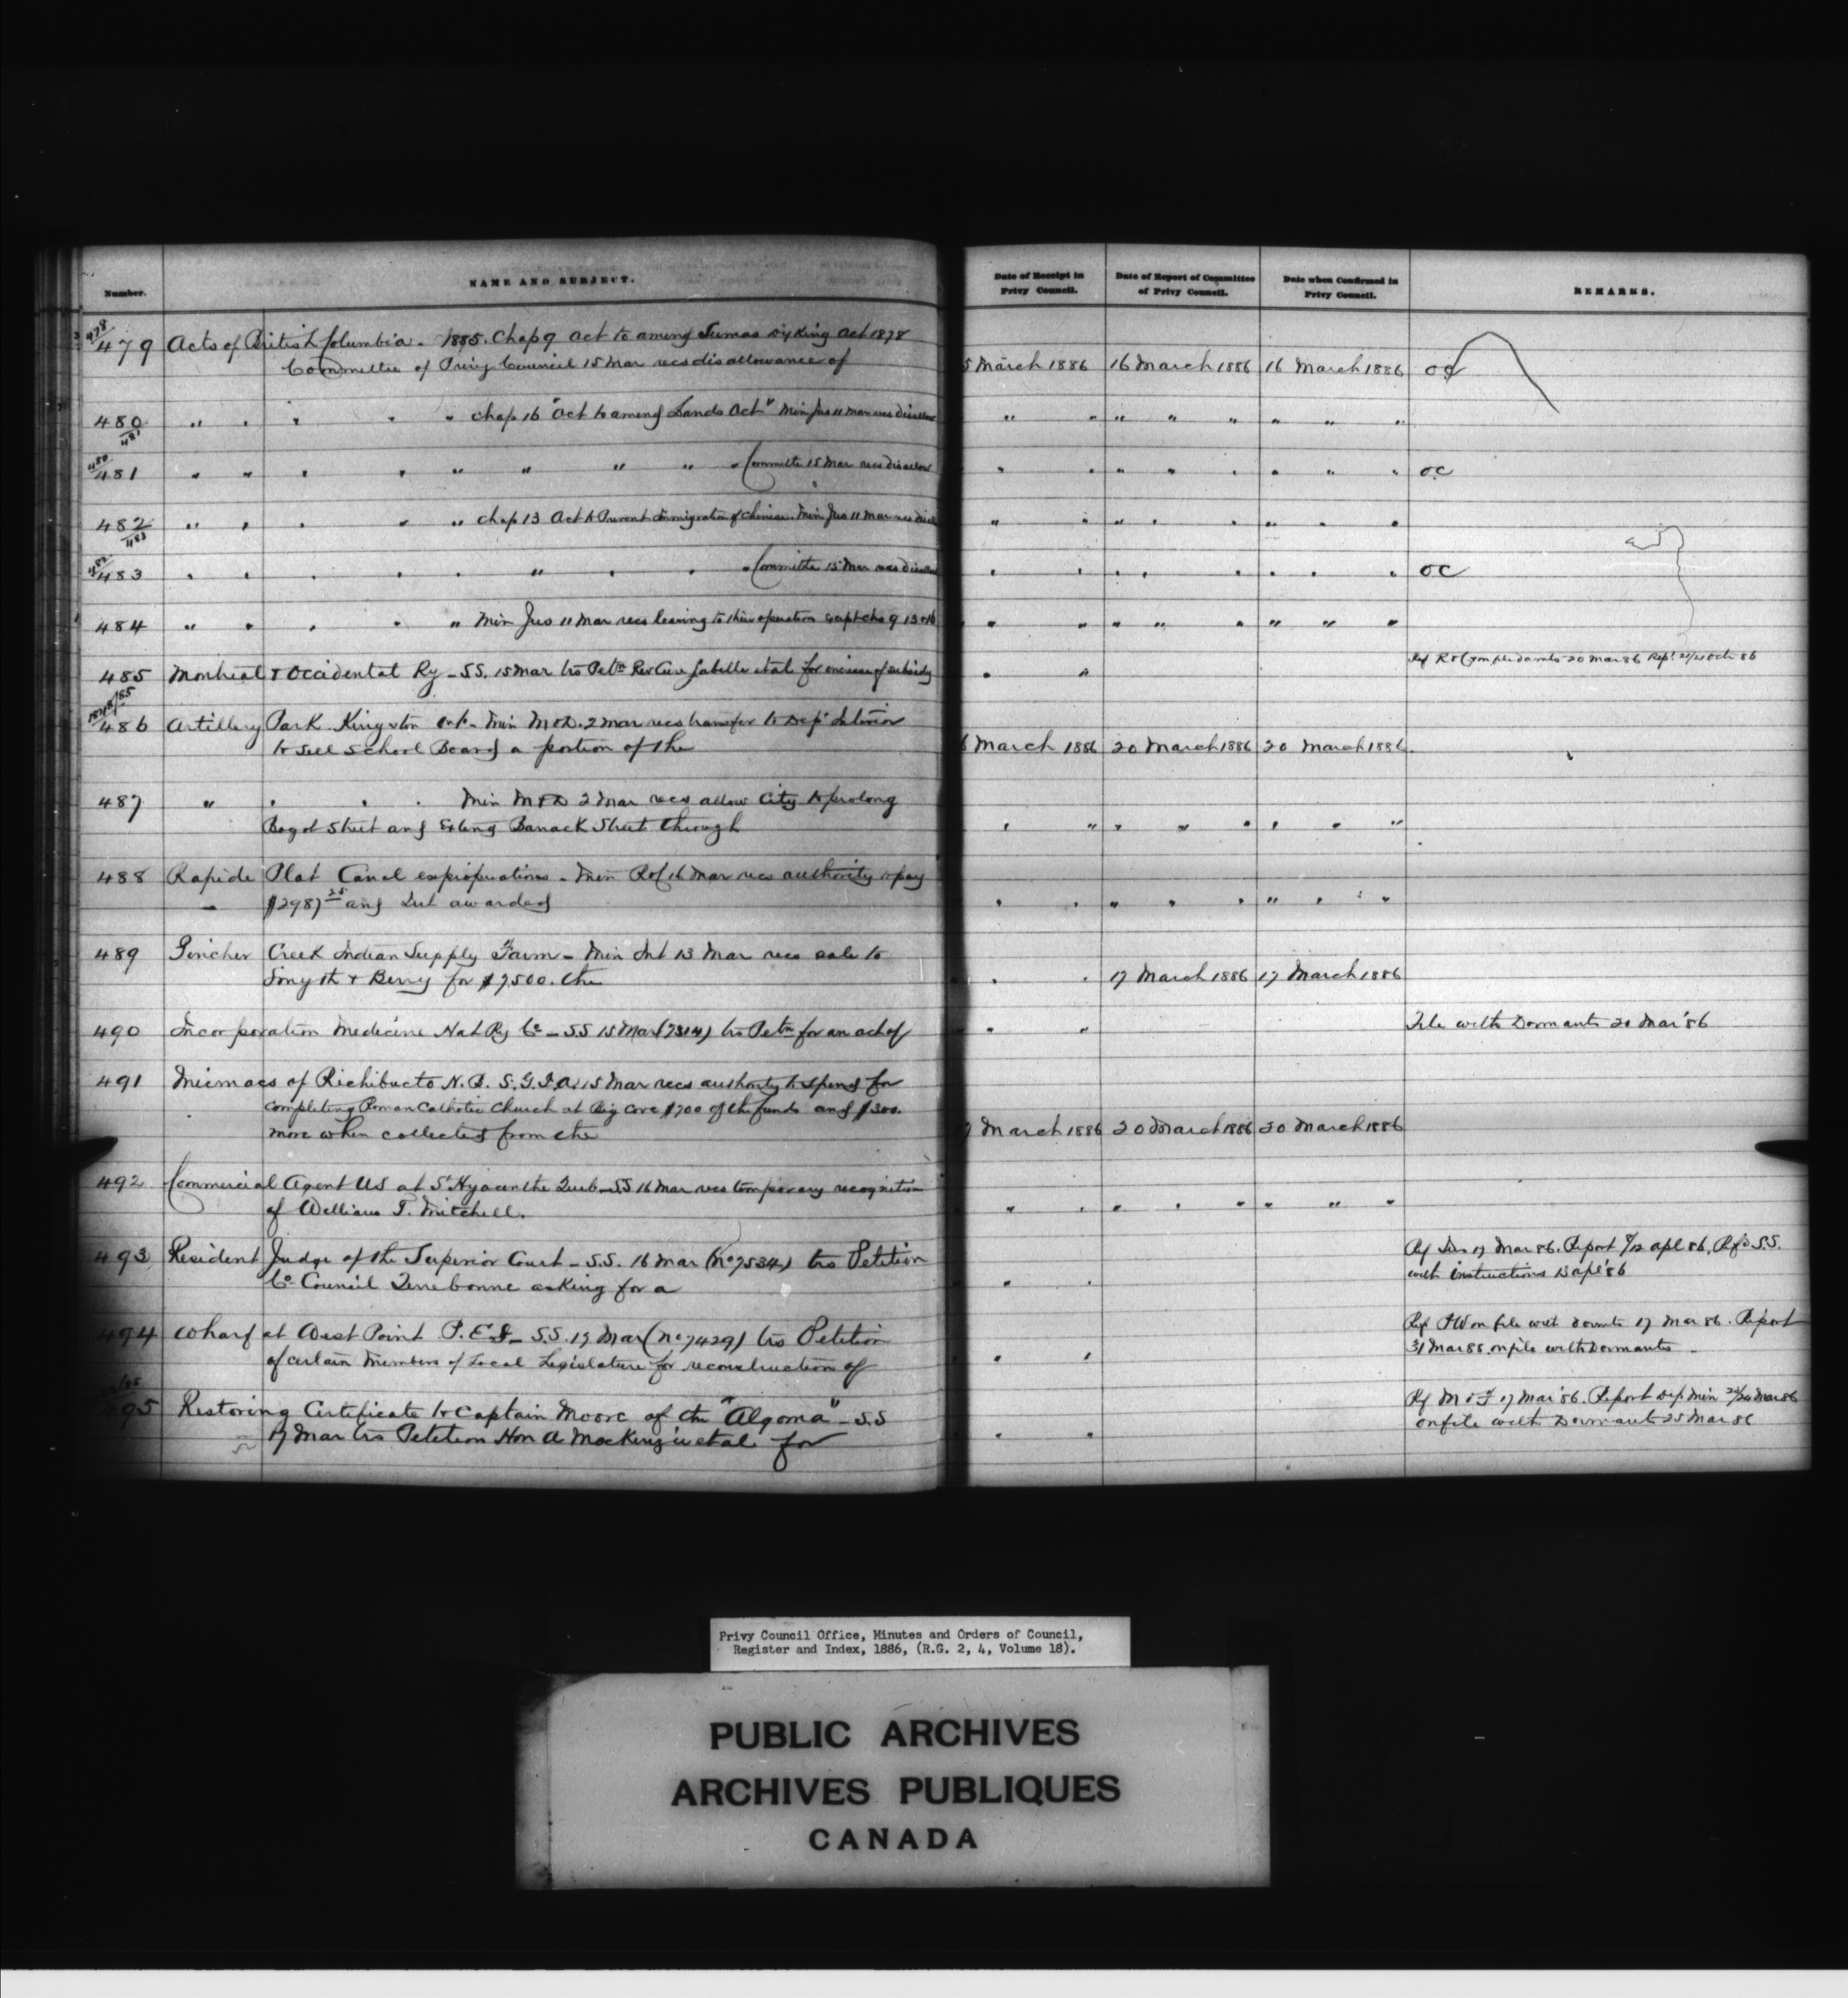 Number. NAME AND SUBJECT. Date of Receipt in Privy Council. Date of Report of Committee of Privy Council. Date when Confirmed in Privy Council. REMARKS.
478/479 Acts of British Columbia - 1885. Chap 9 act to amend Sumas Dyking Act 1878
Committee of Privy Council 15 Mar recs disallowance of 5 March 1886 16 March 1886 16 March 1886 OC
480/481 " " " " " Chap 16 "Act to amend Lands Act" Min Jus 11 Mar recs disallow " " " " " " " "
480/481 " " " " " " " " " Committee 15 Mar recs disallow " " " " " " " " OC
482/483 " " " " " Chap 13 Act to Prevent Immigration of Chinese. Min Jus 11 Mar recs disall " " " " " " " "
482/483 " " " " " " " " " Committee 15 Mar recs disallow " " " " " " " " OC
484 " " " " " Min Jus 11 Mar recs leaving to their operation except chs 9 13 & 16 " " " " " " " "
485 Montreal & Occidental Ry - S.S. 15 Mar trs Petn Rev Cure Labelle et al for increase of subsidy " " Ref R & C on file dormts 20 Mar 86 Rept 21 Octr 86
486 Artillery Park Kingston Ont - Min M & D. 2 Mar recs transfer to Dept Interior
to sell School Board a portion of the 6 March 1886 20 March 1886 20 March 1886.
487 " " " " Min M & D 2 Mar recs allow City to prolong
Bagot Street and Extend Barrack Street through " " " " " " " "
488 Rapide Plat Canal expropriations - Min R & C 16 Mar recs authority to pay
$2987 25 and Int awarded " " " " " " " "
489 Pincher Creek Indian Supply Farm - Min Int 13 Mar recs sale to
Smyth & Berry for $7,500. the " " 17 March 1886 17 March 1886
490 Incorporation Medicine Hat Ry Co - S.S 15 Mar (7314) trs Petn for an act of " " File with Dormants 20 Mar '86
491 Micmacs of Richibucto N.B. S.G.I.A. 15 Mar recs authority to spend for
completing Roman Catholic Church at Big Cove $700 of the funds and $300.
more when collected from the March 1886 20 March 1886 20 March 1886
492 Commercial Agent US at St Hyacinthe Queb - S.S 16 Mar recs temporary recognition
of William T. Mitchell. " " " " " " " "
493 Resident Judge of the Superior Court - S.S. 16 Mar (No 7534) trs Petition Ref Jus 17 Mar 86. Report 8/12 Apl 86, Refd S.S.
Co Council Terrebonne asking for a " " with instructions 13 Apl '86
494 Wharf at West Point P.E.I - S.S. 17 Mar (No 7429) trs Petition Ref PW on file with dormts 17 Mar 86. Report
of certain Members of Local Legislature for reconstruction of " " 31 Mar 86. on file with Dormants -
495 Restoring Certificate to Captain Moore of the "Algoma" - S.S Ref M & F 17 Mar '86. Report Dep Min Mar 86
17 Mar trs Petition Hon A Mackenzie et al for " " on file with Dormants 25 Mar 86
Privy Council Office, Minutes and Orders of Council,
Register and Index, 1886, (R.G. 2, 4, Volume 18).
PUBLIC ARCHIVES
ARCHIVES PUBLIQUES
CANADA